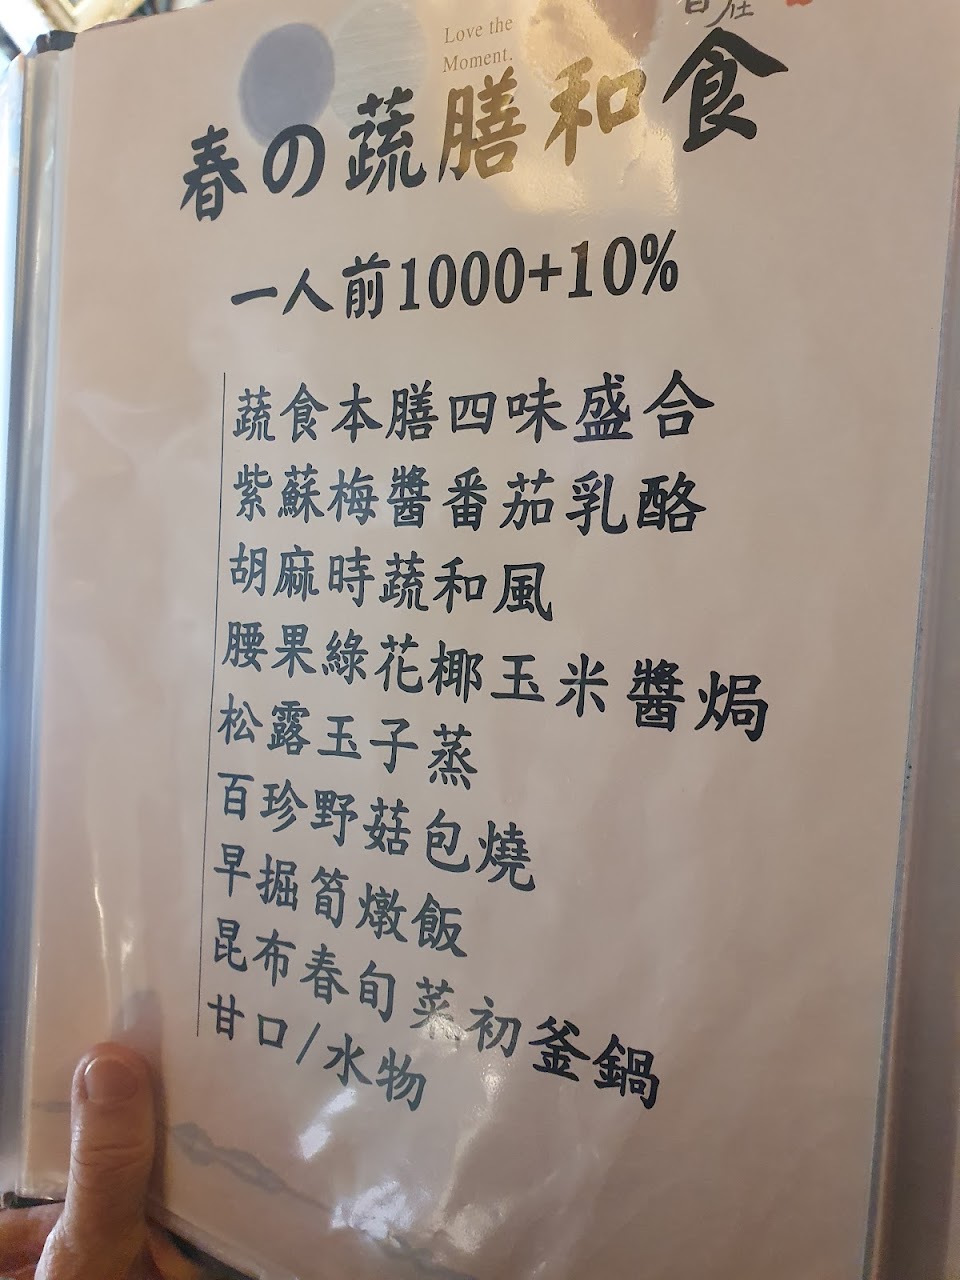 Love the
Moment.
春の蔬膳和食
一人前1000+10%
蔬食本膳四味盛合
紫蘇梅醬番茄乳酪
胡麻時蔬和風
腰果綠花椰玉米醬焗
松露玉子蒸
百珍野菇包燒
早掘筍燉飯
昆布春旬菜初釜鍋
甘口/水物